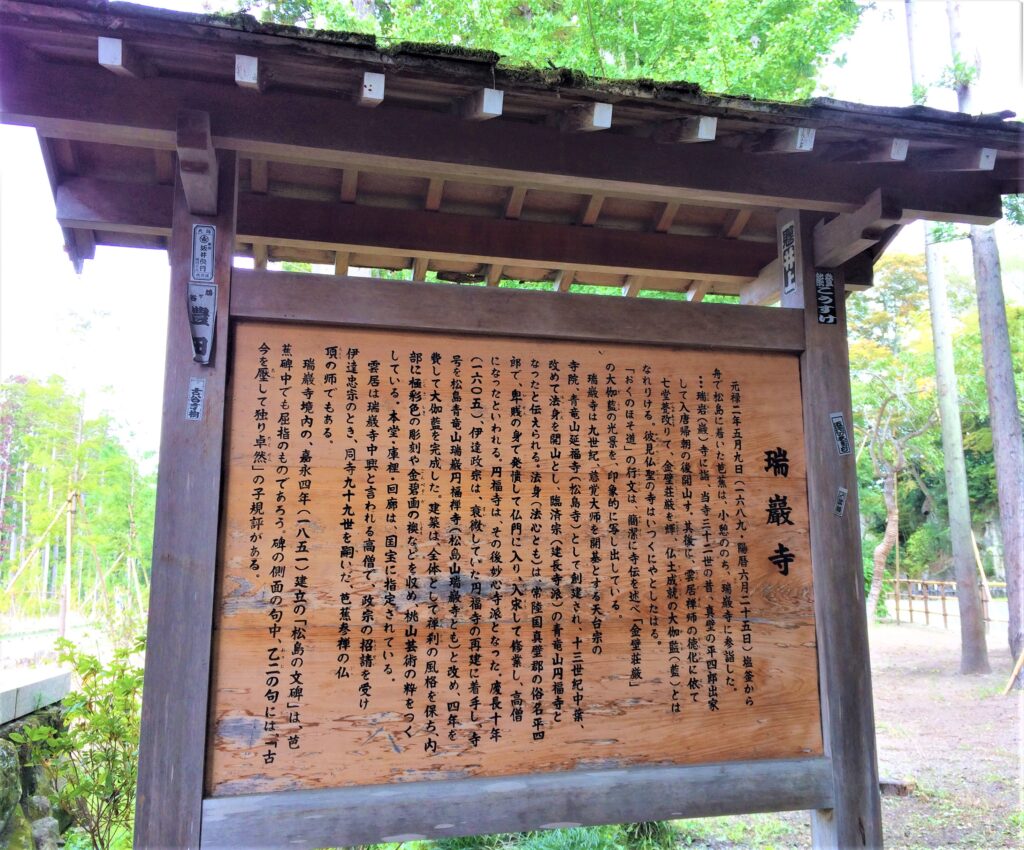 瑞巖寺
元禄二年五月九日（一六八九・陽暦六月二十五日）塩釜から
舟で松島に着いた芭蕉は、小憩ののち、瑞巌寺に参詣した。
…瑞岩（巌）寺に詣。当寺三十二世の昔、真壁の平四郎出家
して入唐帰朝の後開山す。其後に、雲居禅師の徳化に依て
七堂甍改りて、金壁荘厳光を輝、仏土成就の大伽監（藍）とは
なれりける。彼見仏聖の寺はいづくにやとしたはる。
「おくのほそ道」の行文は、簡潔に寺伝を述べ「金壁荘厳」
の大伽藍の光景を、印象的に写し出している。
瑞巌寺は九世紀、慈覚大師を開基とする天台宗の
寺院、青竜山延福寺（松島寺）として創建され、十三世紀中葉、
改めて法身を開山とし、臨済宗（建長寺派）の青竜山円福寺と
なったと伝えられる。法身（法心とも）は、常陸国真壁郡の俗名平四
郎で、卑賎の身で発憤して仏門に入り、入宋して修業し、高僧
になったといわれる。円福寺は、その後妙心寺派となった。慶長十年
（一六〇五）伊達政宗は、衰微していた円福寺の再建に着手し、寺
号を松島青竜山瑞巌円福禅寺（松島山瑞巌寺とも）と改め、四年を
費して大伽藍を完成した。建築は、全体として禅刹の風格を保ち、内
部に極彩色の彫刻や金碧画の襖などを収め、桃山芸術の粋をつく
している。本堂・庫裡・回廊は、国宝に指定されている。
雲居は瑞巌寺中興と言われる高僧で、政宗の招請を受け
伊達忠宗のとき、同寺九十九世を嗣いだ。芭蕉参禅の仏
頂の師でもある。
瑞巌寺境内の、嘉永四年（一八五一）建立の「松島の文碑」は、芭
蕉碑中でも屈指のものであろう。碑の側面の句中、乙二の句には、「古
今を壓して独り卓然」の子規評がある。
こうすけ
豊田